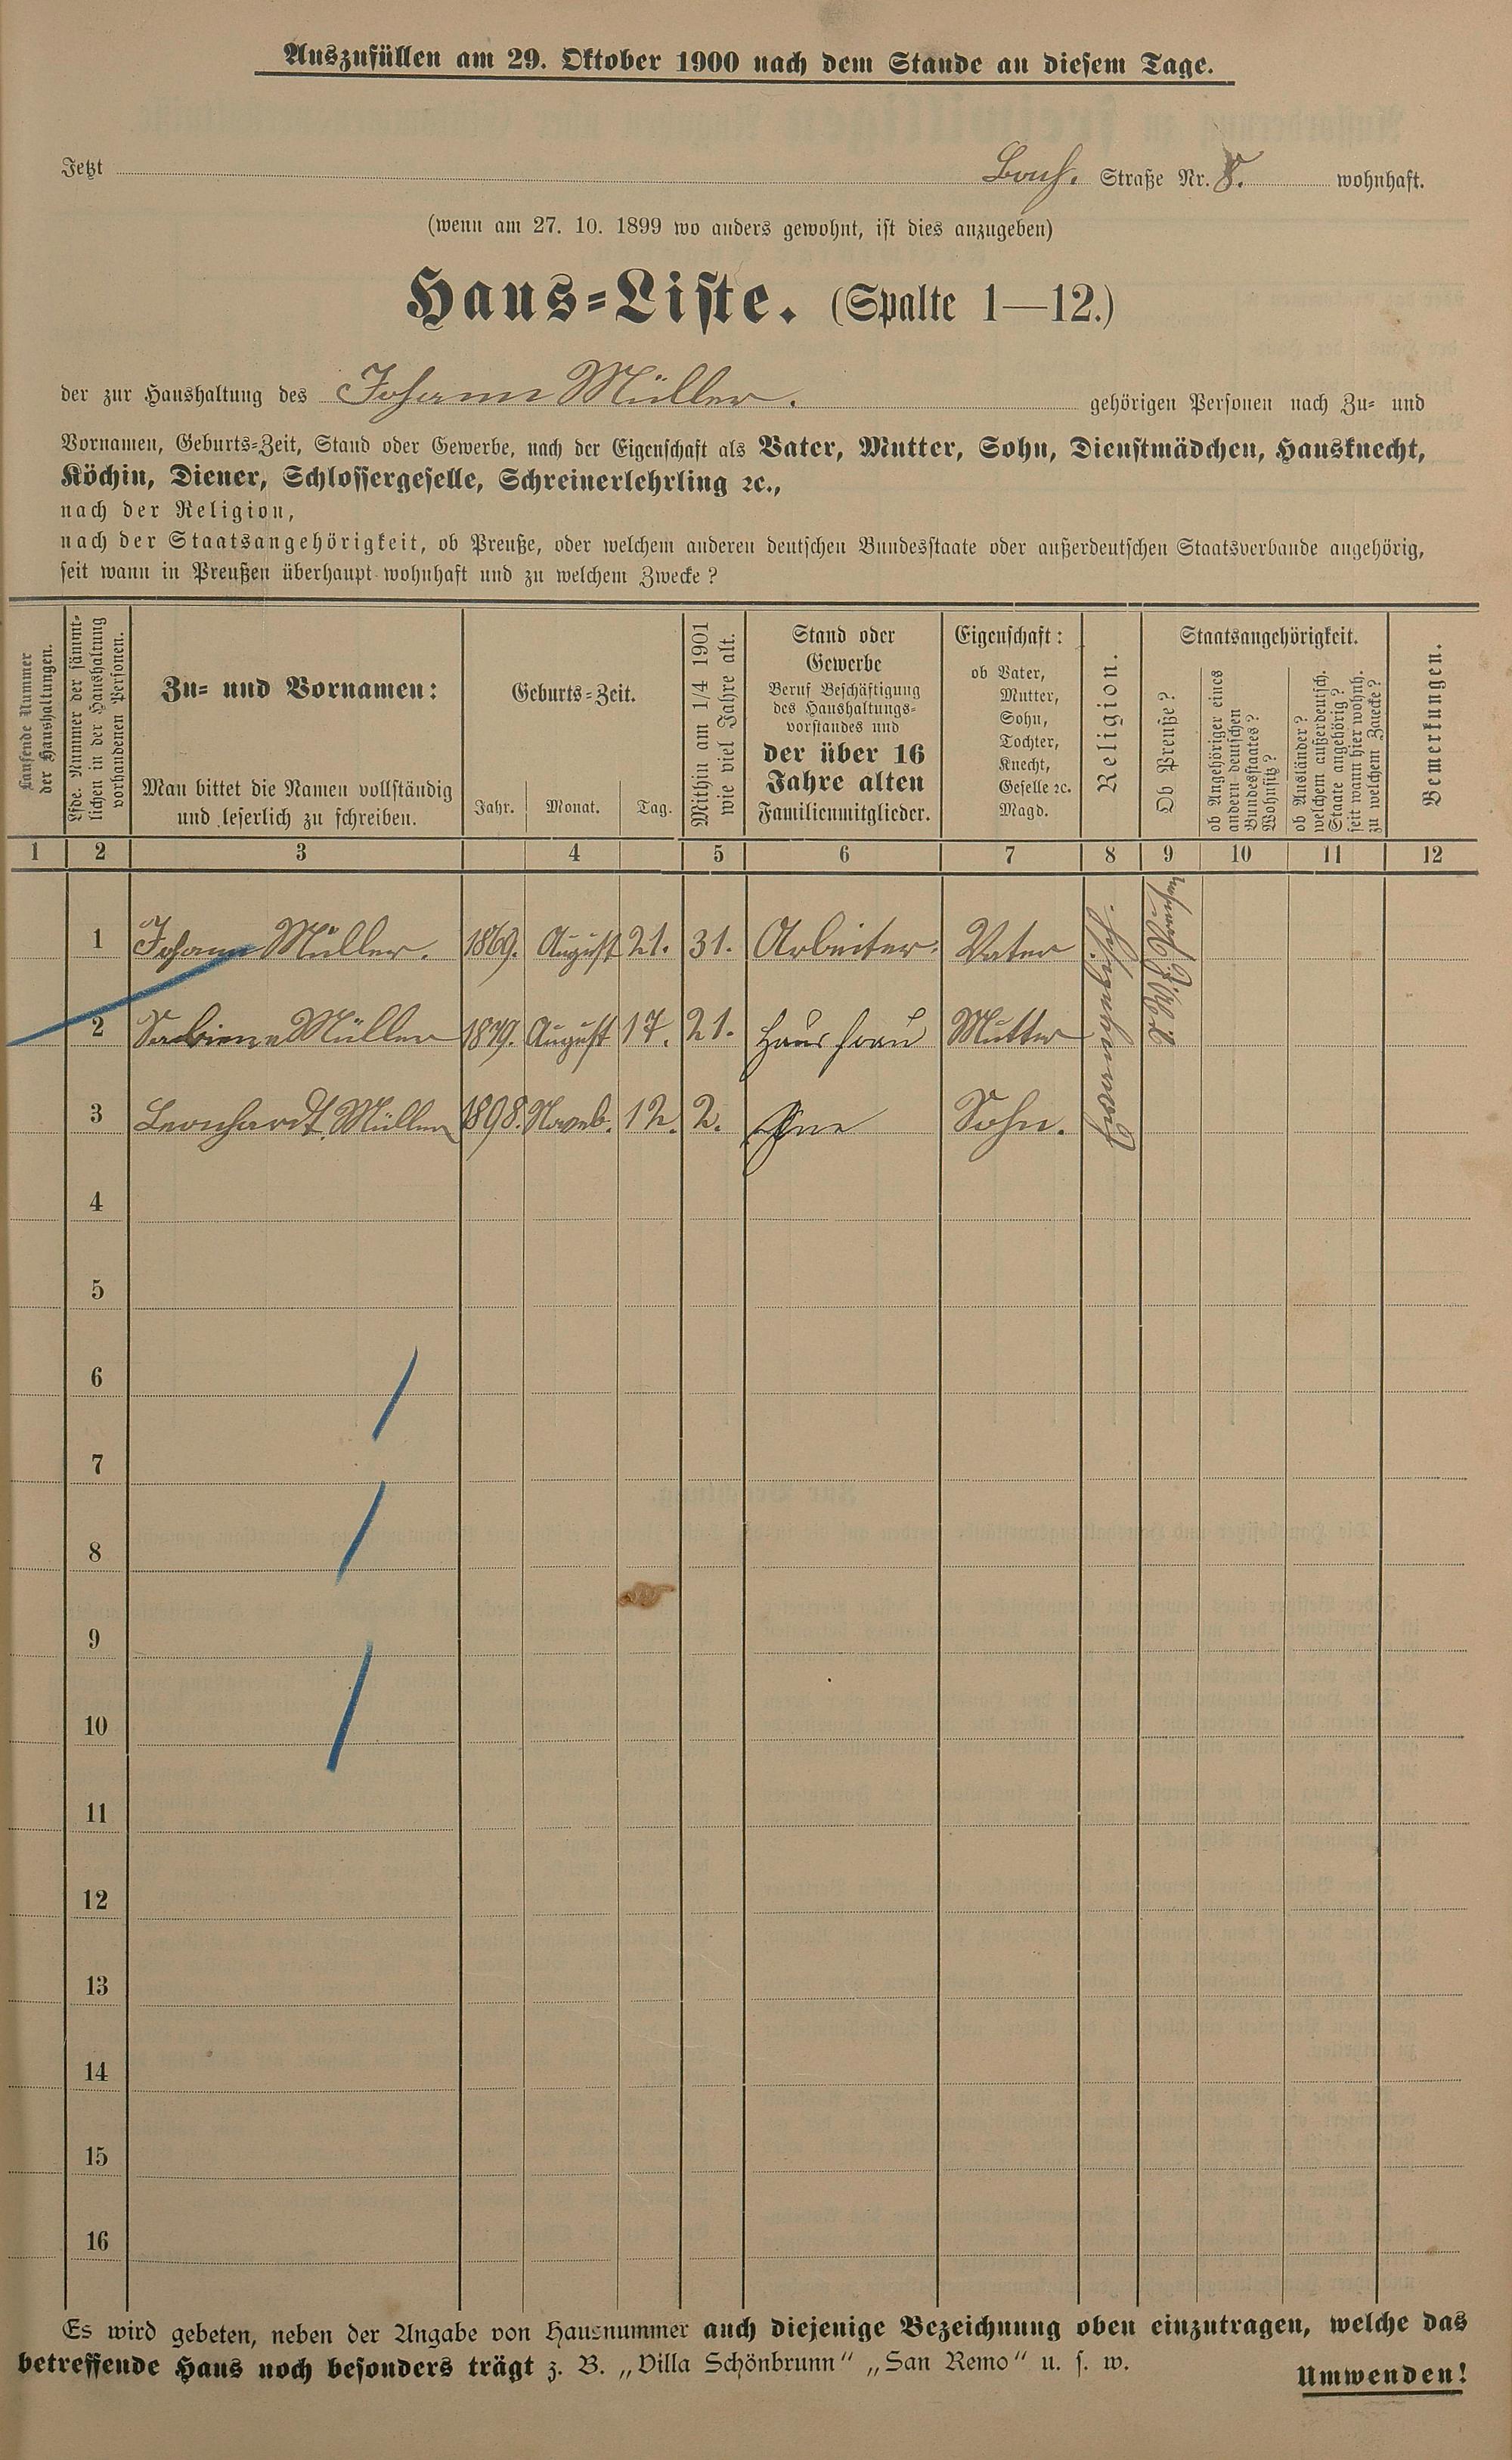 Auszufüllen am 29. Oktober 1900 nach dem Stande an diesem Tage.
Jetzt Straße Nr. 8. wohnhaft.
(wenn am 27. 10. 1899 wo anders gewohnt, ist dies anzugeben)
Haus-Liste. (Spalte 1—12.)
der zur Haushaltung des Johann Müller. gehörigen Personen nach Zu- und
Vornamen, Geburts-Zeit, Stand oder Gewerbe, nach der Eigenschaft als Vater, Mutter, Sohn, Dienstmädchen, Hausknecht,
Köchin, Diener, Schlossergeselle, Schreinerlehrling ꝛc.,
nach der Religion,
nach der Staatsangehörigkeit, ob Preuße, oder welchem anderen deutschen Bundesstaate oder außerdeutschen Staatsverbande angehörig,
seit wann in Preußen überhaupt wohnhaft und zu welchem Zwecke?
Laufende Nummer
der Haushaltungen.
Lfde. Nummer der sämmt-
lichen in der Haushaltung
vorhandenen Personen.
Zu- und Vornamen:
Man bittet die Namen vollständig
und leserlich zu schreiben.
Geburts-Zeit.
Jahr. Monat. Tag.
Mithin am 1/4 1901
wie viel Jahre alt.
Stand oder
Gewerbe
Beruf Beschäftigung
des Haushaltungs-
vorstandes und
der über 16
Jahre alten
Familienmitglieder.
Eigenschaft:
ob Vater,
Mutter,
Sohn,
Tochter,
Knecht,
Geselle ꝛc.
Magd.
Religion.
Staatsangehörigkeit.
Ob Preuße?
ob Angehöriger eines
andern deutschen
Bundesstaates?
Wohnsitz?
ob Ausländer?
welchem außerdeutsch.
Staate angehörig?
seit wann hier wohnh.
zu welchem Zwecke?
Bemerkungen.
1 2 3 4 5 6 7 8 9 10 11 12
1 Johann Müller. 1869. August 21. 31. Arbeiter. Vater
2 Sabiena Müller 1879. August 17. 21. Hausfrau Mutter
3 Leonhardt Müller 1898. Noveb. 12. 2. Sohn.
4
5
6
7
8
9
10
11
12
13
14
15
16
Es wird gebeten, neben der Angabe von Hausnummer auch diejenige Bezeichnung oben einzutragen, welche das
betreffende Haus noch besonders trägt z. B. „Villa Schönbrunn“ „San Remo“ u. s. w.
Umwenden!